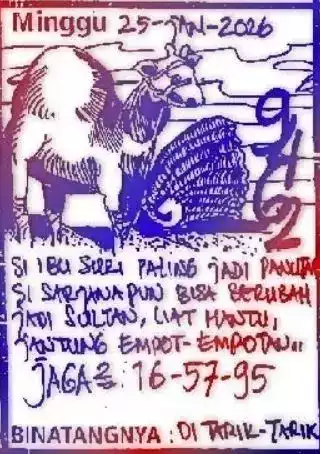 Minggu 25-JAN-2026
9742
SI IBU SURI PALING JADI PANUTAN
SI SARJANA PUN BISA BERUBAH
JADI SULTAN, LIAT HANTU,
JANTUNG EMPOT-EMPOTAN..
JAGA2: 16-57-95
BINATANGNYA : DI TARIK-TARIK